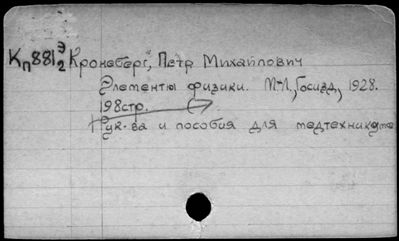 Кп 881 Э/2 Кронеберг, Петр Михайлович
Элементы физики. М-Л, Госизд, 1928.
198стр.
Рук-ва и пособия для медтехникумо